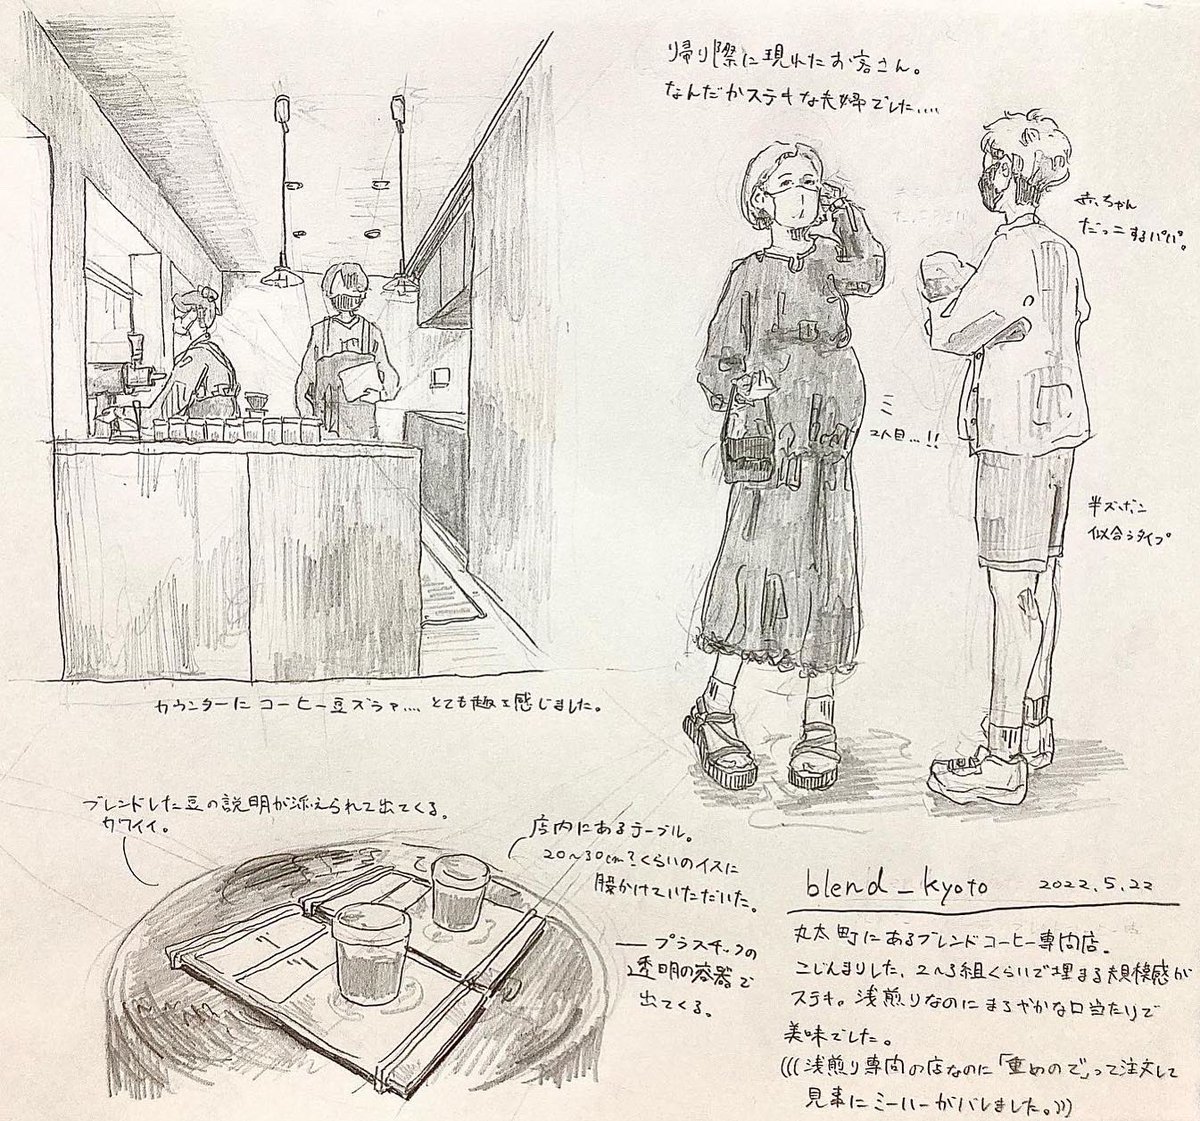 帰り際に現れたお客さん。
なんだかステキな夫婦でした....
赤ちゃん
だっこするパパ。
2人目...!!
半ズボン
似合うタイプ
カウンターにコーヒー豆ズラァ....とても趣を感じました。
ブレンドした豆の説明が添えられて出てくる。
カワイイ。
店内にあるテーブル。
20〜30cm?くらいのイスに
腰かけていただいた。
プラスチックの
透明の容器で
出てくる。
blend_kyoto 2022.5.22
丸太町にあるブレンドコーヒー専門店。
こじんまりした、2〜3組くらいで埋まる規模感が
ステキ。浅煎りなのにまろやかな口当たりで
美味でした。
(((浅煎り専門の店なのに「重めので」って注文して
見事にミーハーがバレしました。)))